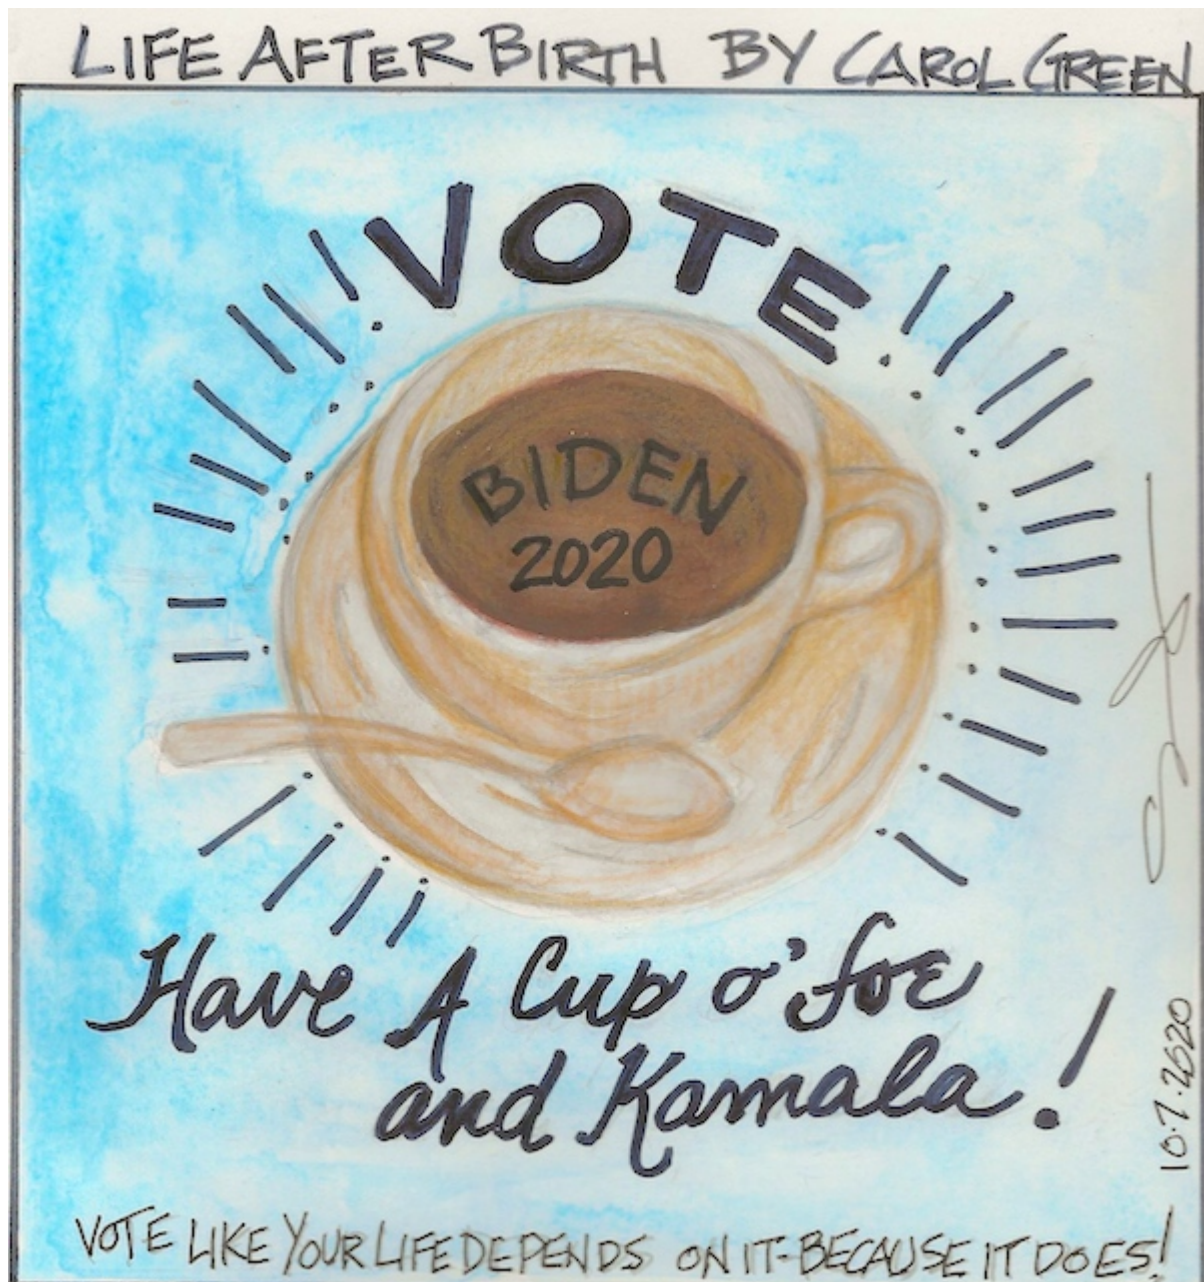 LIFE AFTER BIRTH BY CAROL GREEN
VOTE
BIDEN
2020
Have A Cup o' Joe
and Kamala!
10.7.2020
VOTE LIKE YOUR LIFE DEPENDS ON IT-BECAUSE IT DOES!